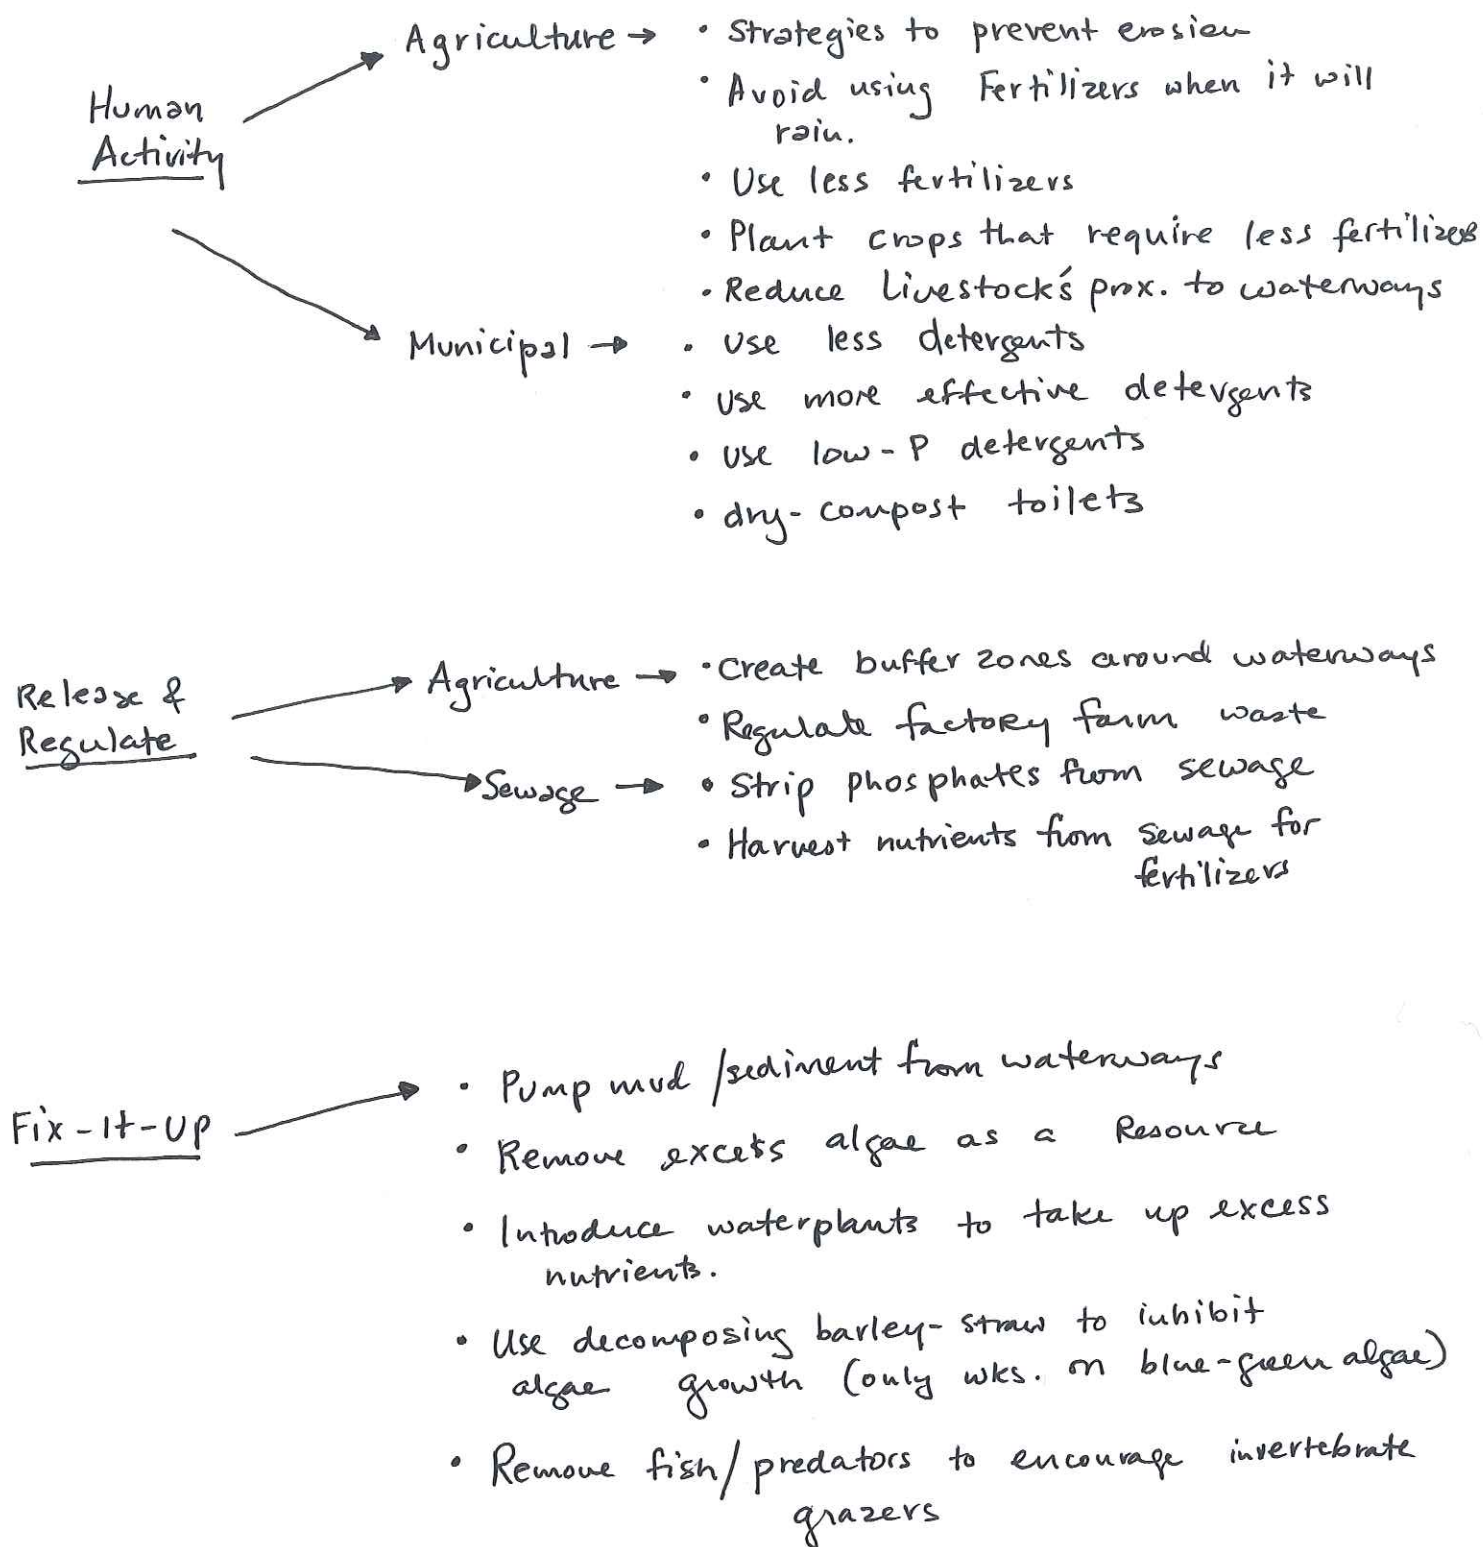 Agriculture → • Strategies to prevent erosion
Human
Activity
• Avoid using Fertilizers when it will
rain.
• Use less fertilizers
• Plant crops that require less fertilizers
• Reduce Livestock's prox. to waterways
Municipal → • Use less detergents
• Use more effective detergents
• Use low-P detergents
• dry-compost toilets
Release &
Regulate
Agriculture → • Create buffer zones around waterways
• Regulate factory farm waste
Sewage → • Strip phosphates from sewage
• Harvest nutrients from sewage for
fertilizers
Fix-It-Up
• Pump mud/sediment from waterways
• Remove excess algae as a Resource
• Introduce waterplants to take up excess
nutrients.
• Use decomposing barley-straw to inhibit
algae growth (only wks. on blue-green algae)
• Remove fish/predators to encourage invertebrate
grazers